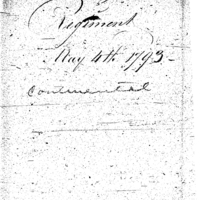 Regiment
May 4th 1793
Continental